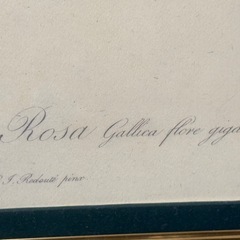 Rosa Gallica flore giga
P. J. Redouté pinx